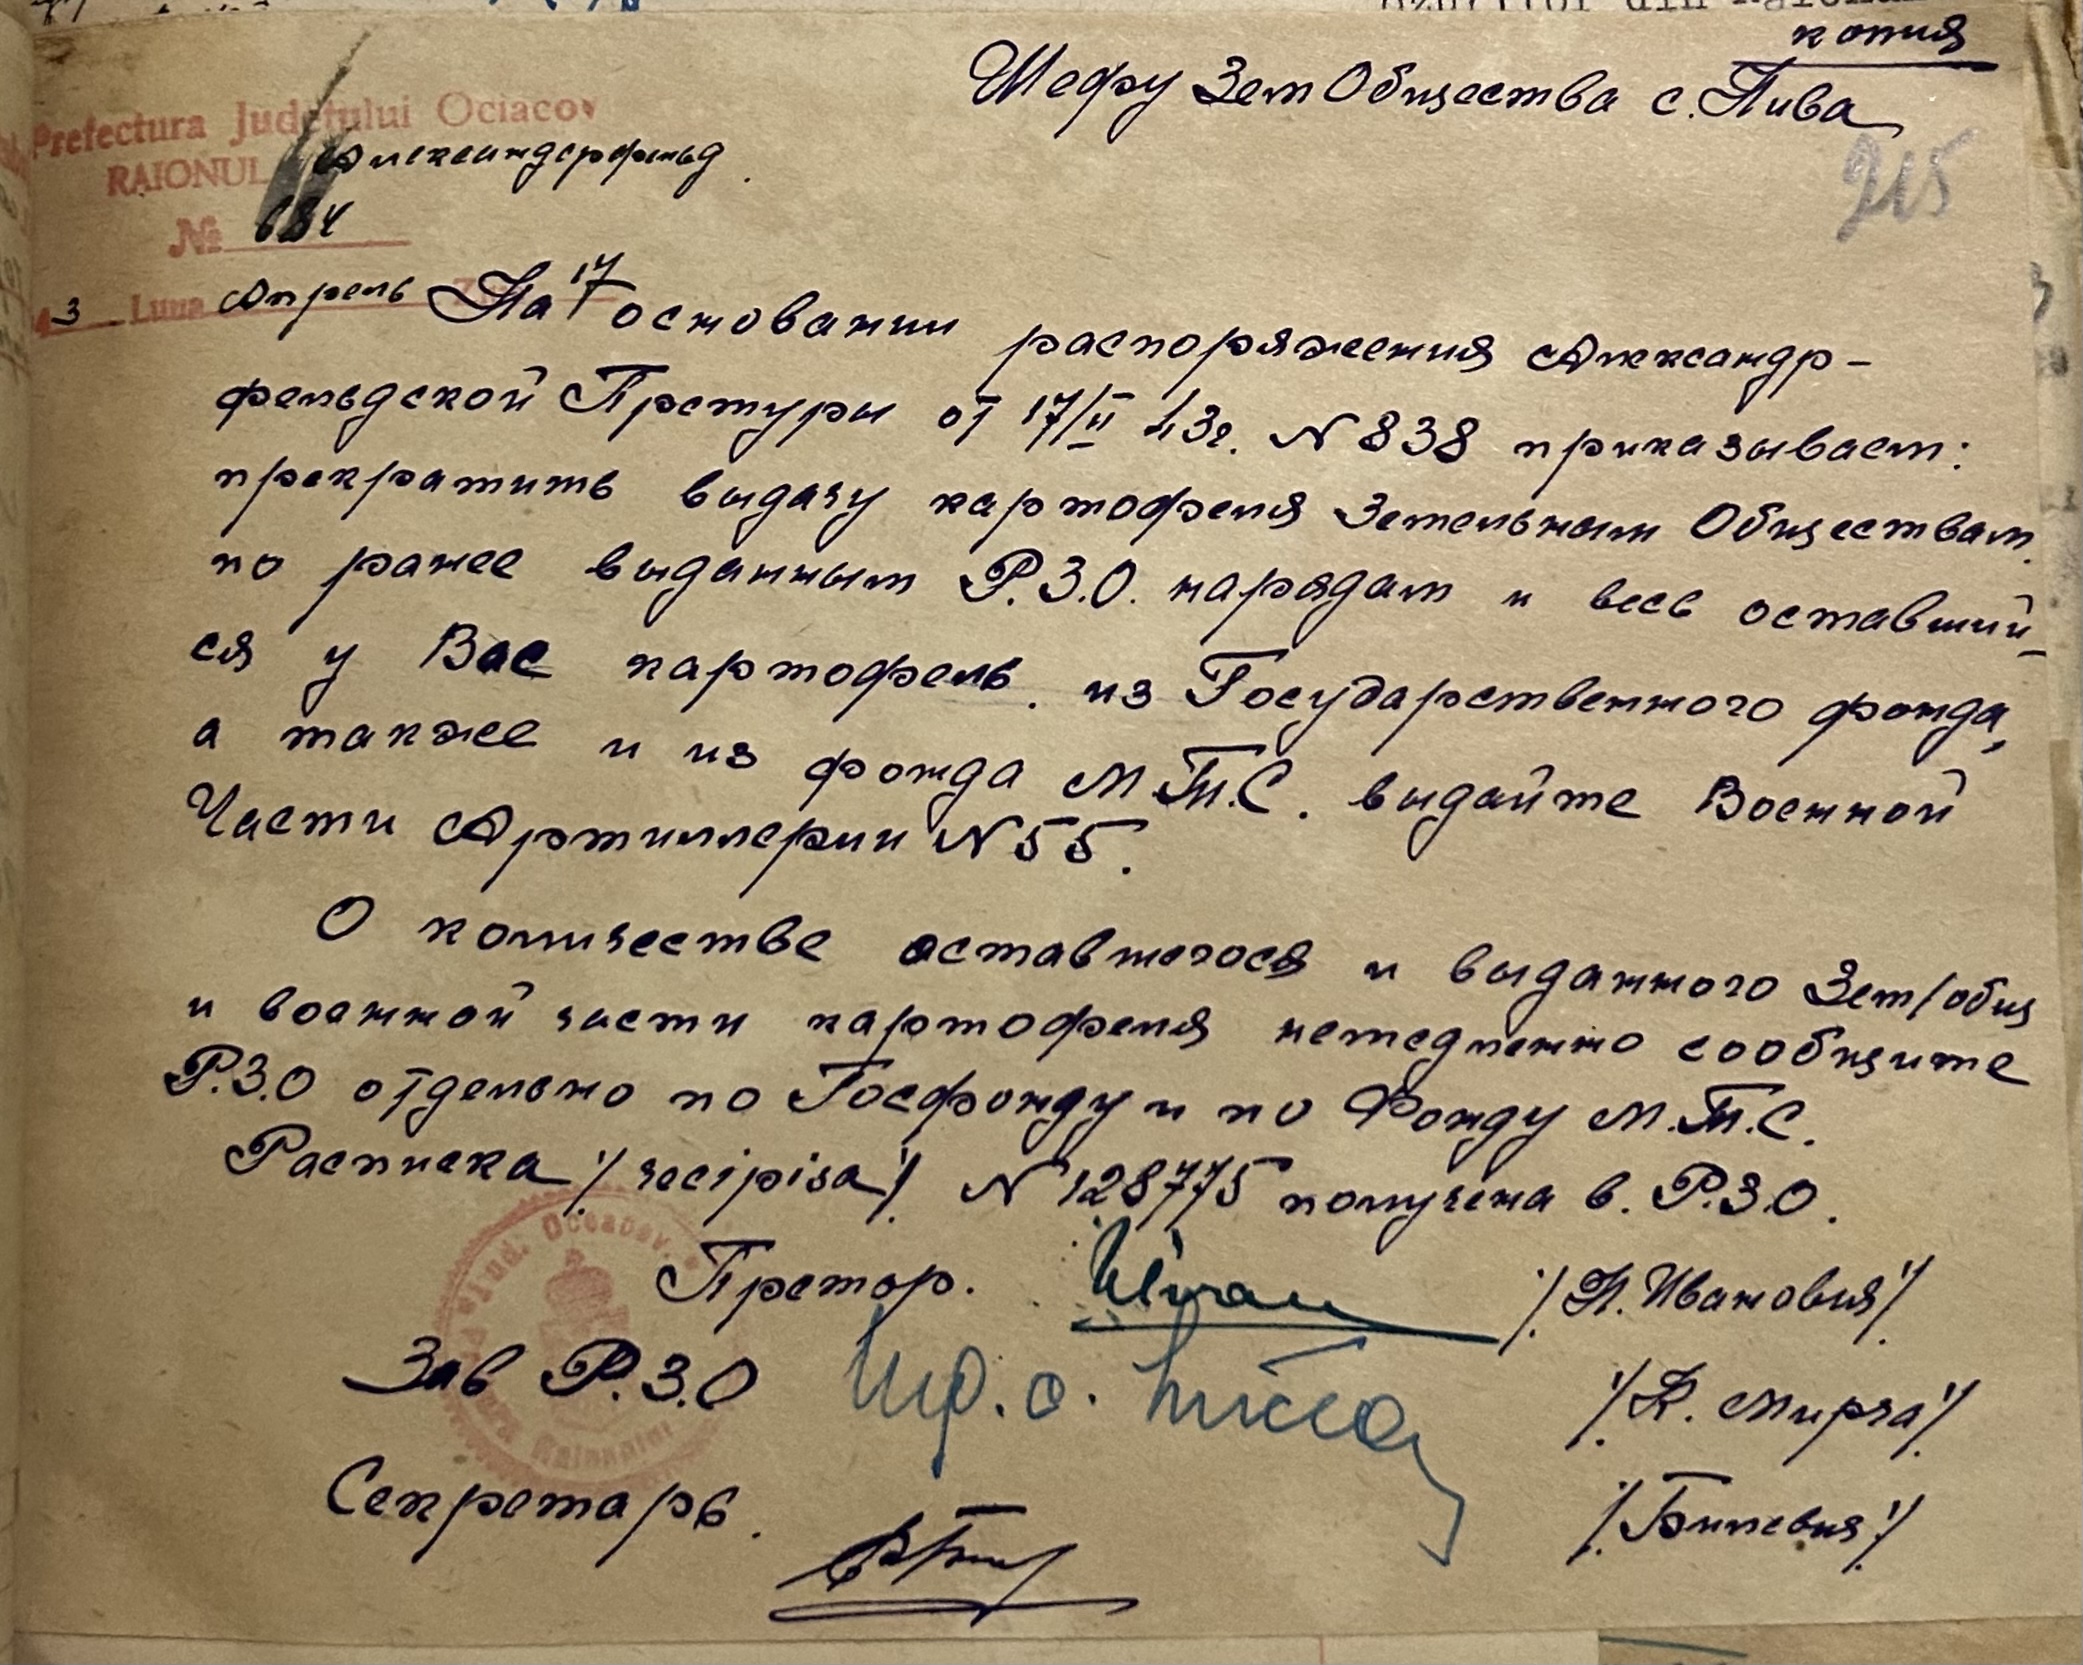 копия
Шефу ЗемОбщества с. Пива
215
Prefectura Județului Ociacov
RAIONUL Александерфельд.
№ 684
43 Luna Апрель 17
На основании распоряжения Александр-
фельдской Претуры от 17/II 43г. N 838 приказывает:
прекратить выдачу картофеля Земельным Обществам
по ранее выданным Р.З.О. нарядам и весь оставший-
ся у Вас картофель. из Государственного фонда,
а также и из фонда М.Т.С. выдайте Военной
Части Артиллерии N 55.
О количестве оставшегося и выданного Зем/общ
и военной части картофеля немедленно сообщите
Р.З.О отдельно по Госфонду и по Фонду М.Т.С.
Расписка /recipisa/ N 128775 получена в. Р.З.О.
Претор. /П. Иванович/
Зав Р.З.О /К. Мирча/
Секретарь. /Билевич/